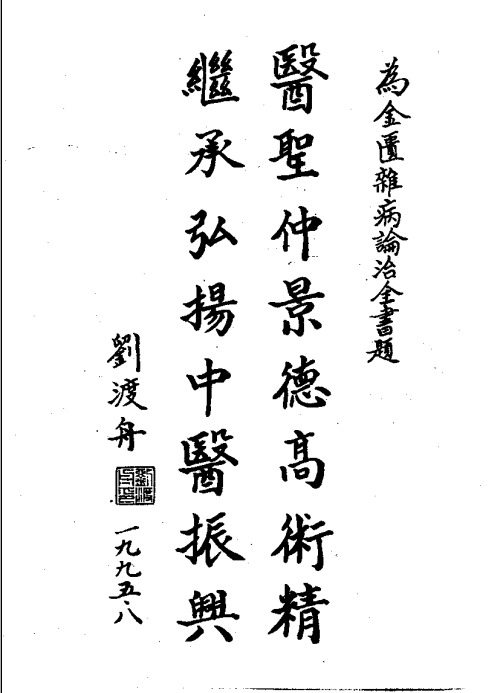 為金匱雜病論治全書題
醫聖仲景德高術精
繼承弘揚中醫振興
劉渡舟
劉渡舟印
一九九五·八